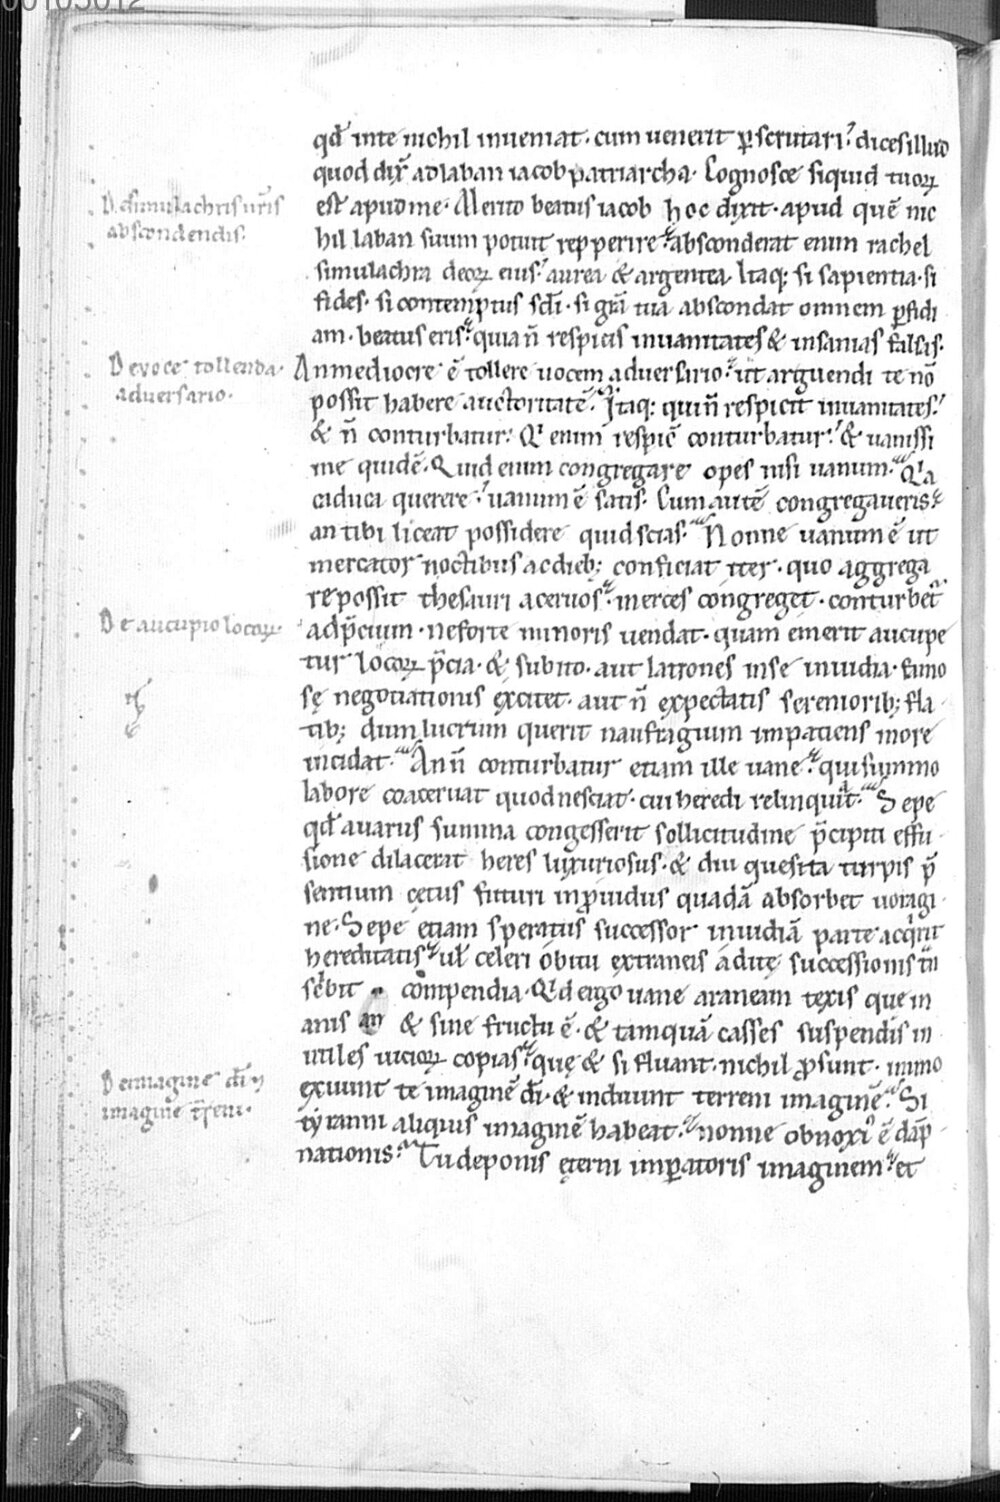 00105012
qđ inte nichil inueniat · cum uenerit ꝑscrutari? dicesillud
quod dix̄ adlaban iacob patriarcha · Cognosce siquid tuoꝝ
est apudme · Merito beatus iacob hoc dixit · apud quē nic
hil laban suum potuit repperire · absconderat enim rachel
simulachra deoꝝ eius · aurea & argentea Itaq; si sapientia · si
fides · si contemptus sc̄li · si gr̄a tua abscondat omnem ꝑfidi
am · beatus eris · quia n̄ respicis inuanitates & insanias falsas ·
Anmediocre ē tollere uocem aduersario · ut arguendi te nō
possit habere auctoritatē · Itaq; qui n̄ respicit inuanitates ·
& n̄ conturbatur · Qi enim respic̄ conturbatur · & uanissi
me quidē · Quid enim congregare opes nisi uanum · Qa
caduca querere · uanum ē satis · Cum autē congregaueris ·
an tibi liceat possidere quid scias · Nonne uanum ē ut
mercator noctibus ac dieb; conficiat iter · quo aggrega
re possit thesauri aceruos · merces congreget · conturbet᷑
adp̄cium · neforte minoris uendat · quam emerit aucupe
tur locoꝝ p̄cia · & subito · aut latrones inse inuidia · famo
sę negotiationis excitet · aut n̄ expectatis sereniorib; fla
tib; dum lucrum querit naufragium impatiens more
incidat · An n̄ conturbatur etiam ille uane · qui summo
labore coaceruat quod nesciat · cui heredi relinquat · Sepe
qđ auarus summa congesserit sollicitudine p̄cipiti effu
sione dilacerat heres luxuriosus · & diu quesita turpis p̄
sentium cetus futuri inꝓuidus quadā absorbet uoragi
ne · Sepe etiam speratus successor inuidiā parte acq̇rit
hereditatis · ul̄ celeri obitu extraneis aditę successionis t̄n
sc̄bit compendia · Qd ergo uane araneam texis que in
anis & sine fructu ē · & tamquā casses suspendis in
utiles uicioꝝ copias · quę & si fluant · nichil ꝓsunt · immo
exuunt te imaginē dī · & induunt terreni imaginē · Si
tyranni aliquis imaginē habeat · nonne obnoxi᷒ ē dāp
nationis · Tu deponis eterni imꝑatoris imaginem · et
D simulachris ur̄is
abscondendis ·
De uoce tollenda
aduersario ·
De aucupio locoꝝ ·
De imagine dī ⁊
imagine t̄reni ·